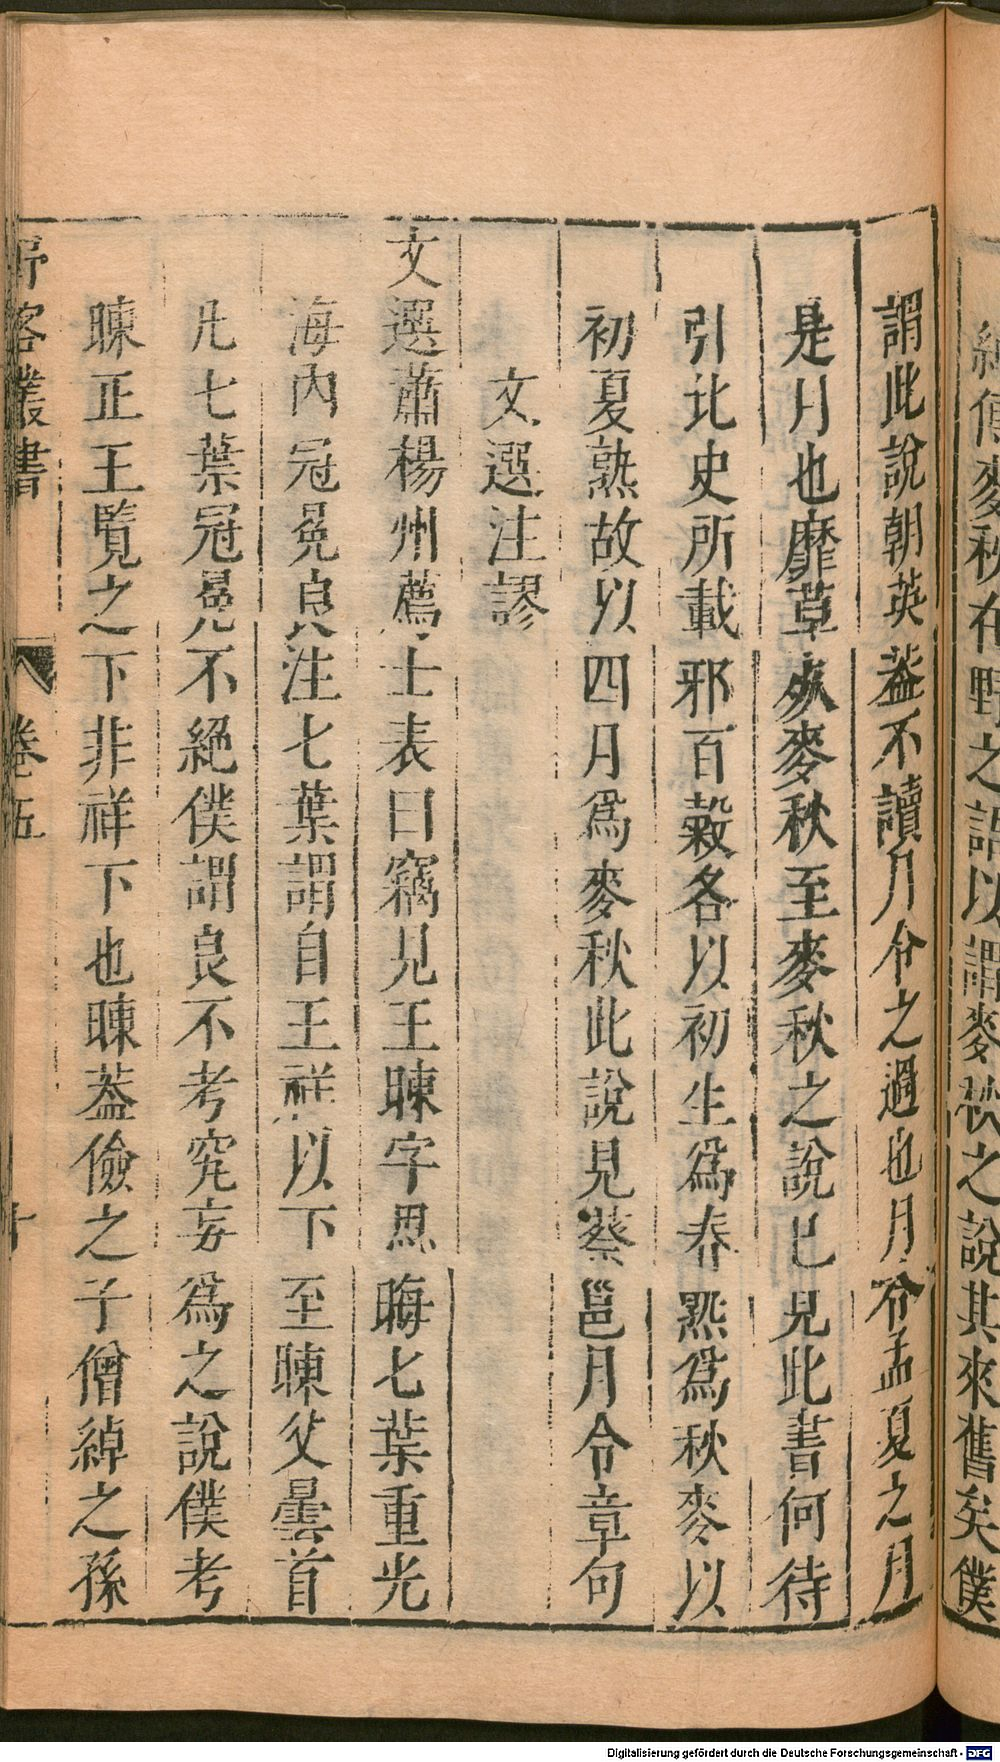 經傳麥秋在野之語以謂麥秋之說其來舊矣僕
謂此說朝英葢不讀月令之過也月令孟夏之月
是月也靡草死麥秋至麥秋之說已見此書何待
引北史所載邪百穀各以初生爲春熟爲秋麥以
初夏熟故以四月爲麥秋此說見蔡邕月令章句
文選注謬
文選蕭楊州薦士表曰竊見王暕字思晦七葉重光
海內冠冕良注七葉謂自王祥以下至暕父曇首
凡七葉冠冕不絕僕謂良不考究妄爲之說僕考
暕正王覽之下非祥下也暕葢儉之子僧綽之孫
野客叢書 卷五 十
Digitalisierung gefördert durch die Deutsche Forschungsgemeinschaft - DFG